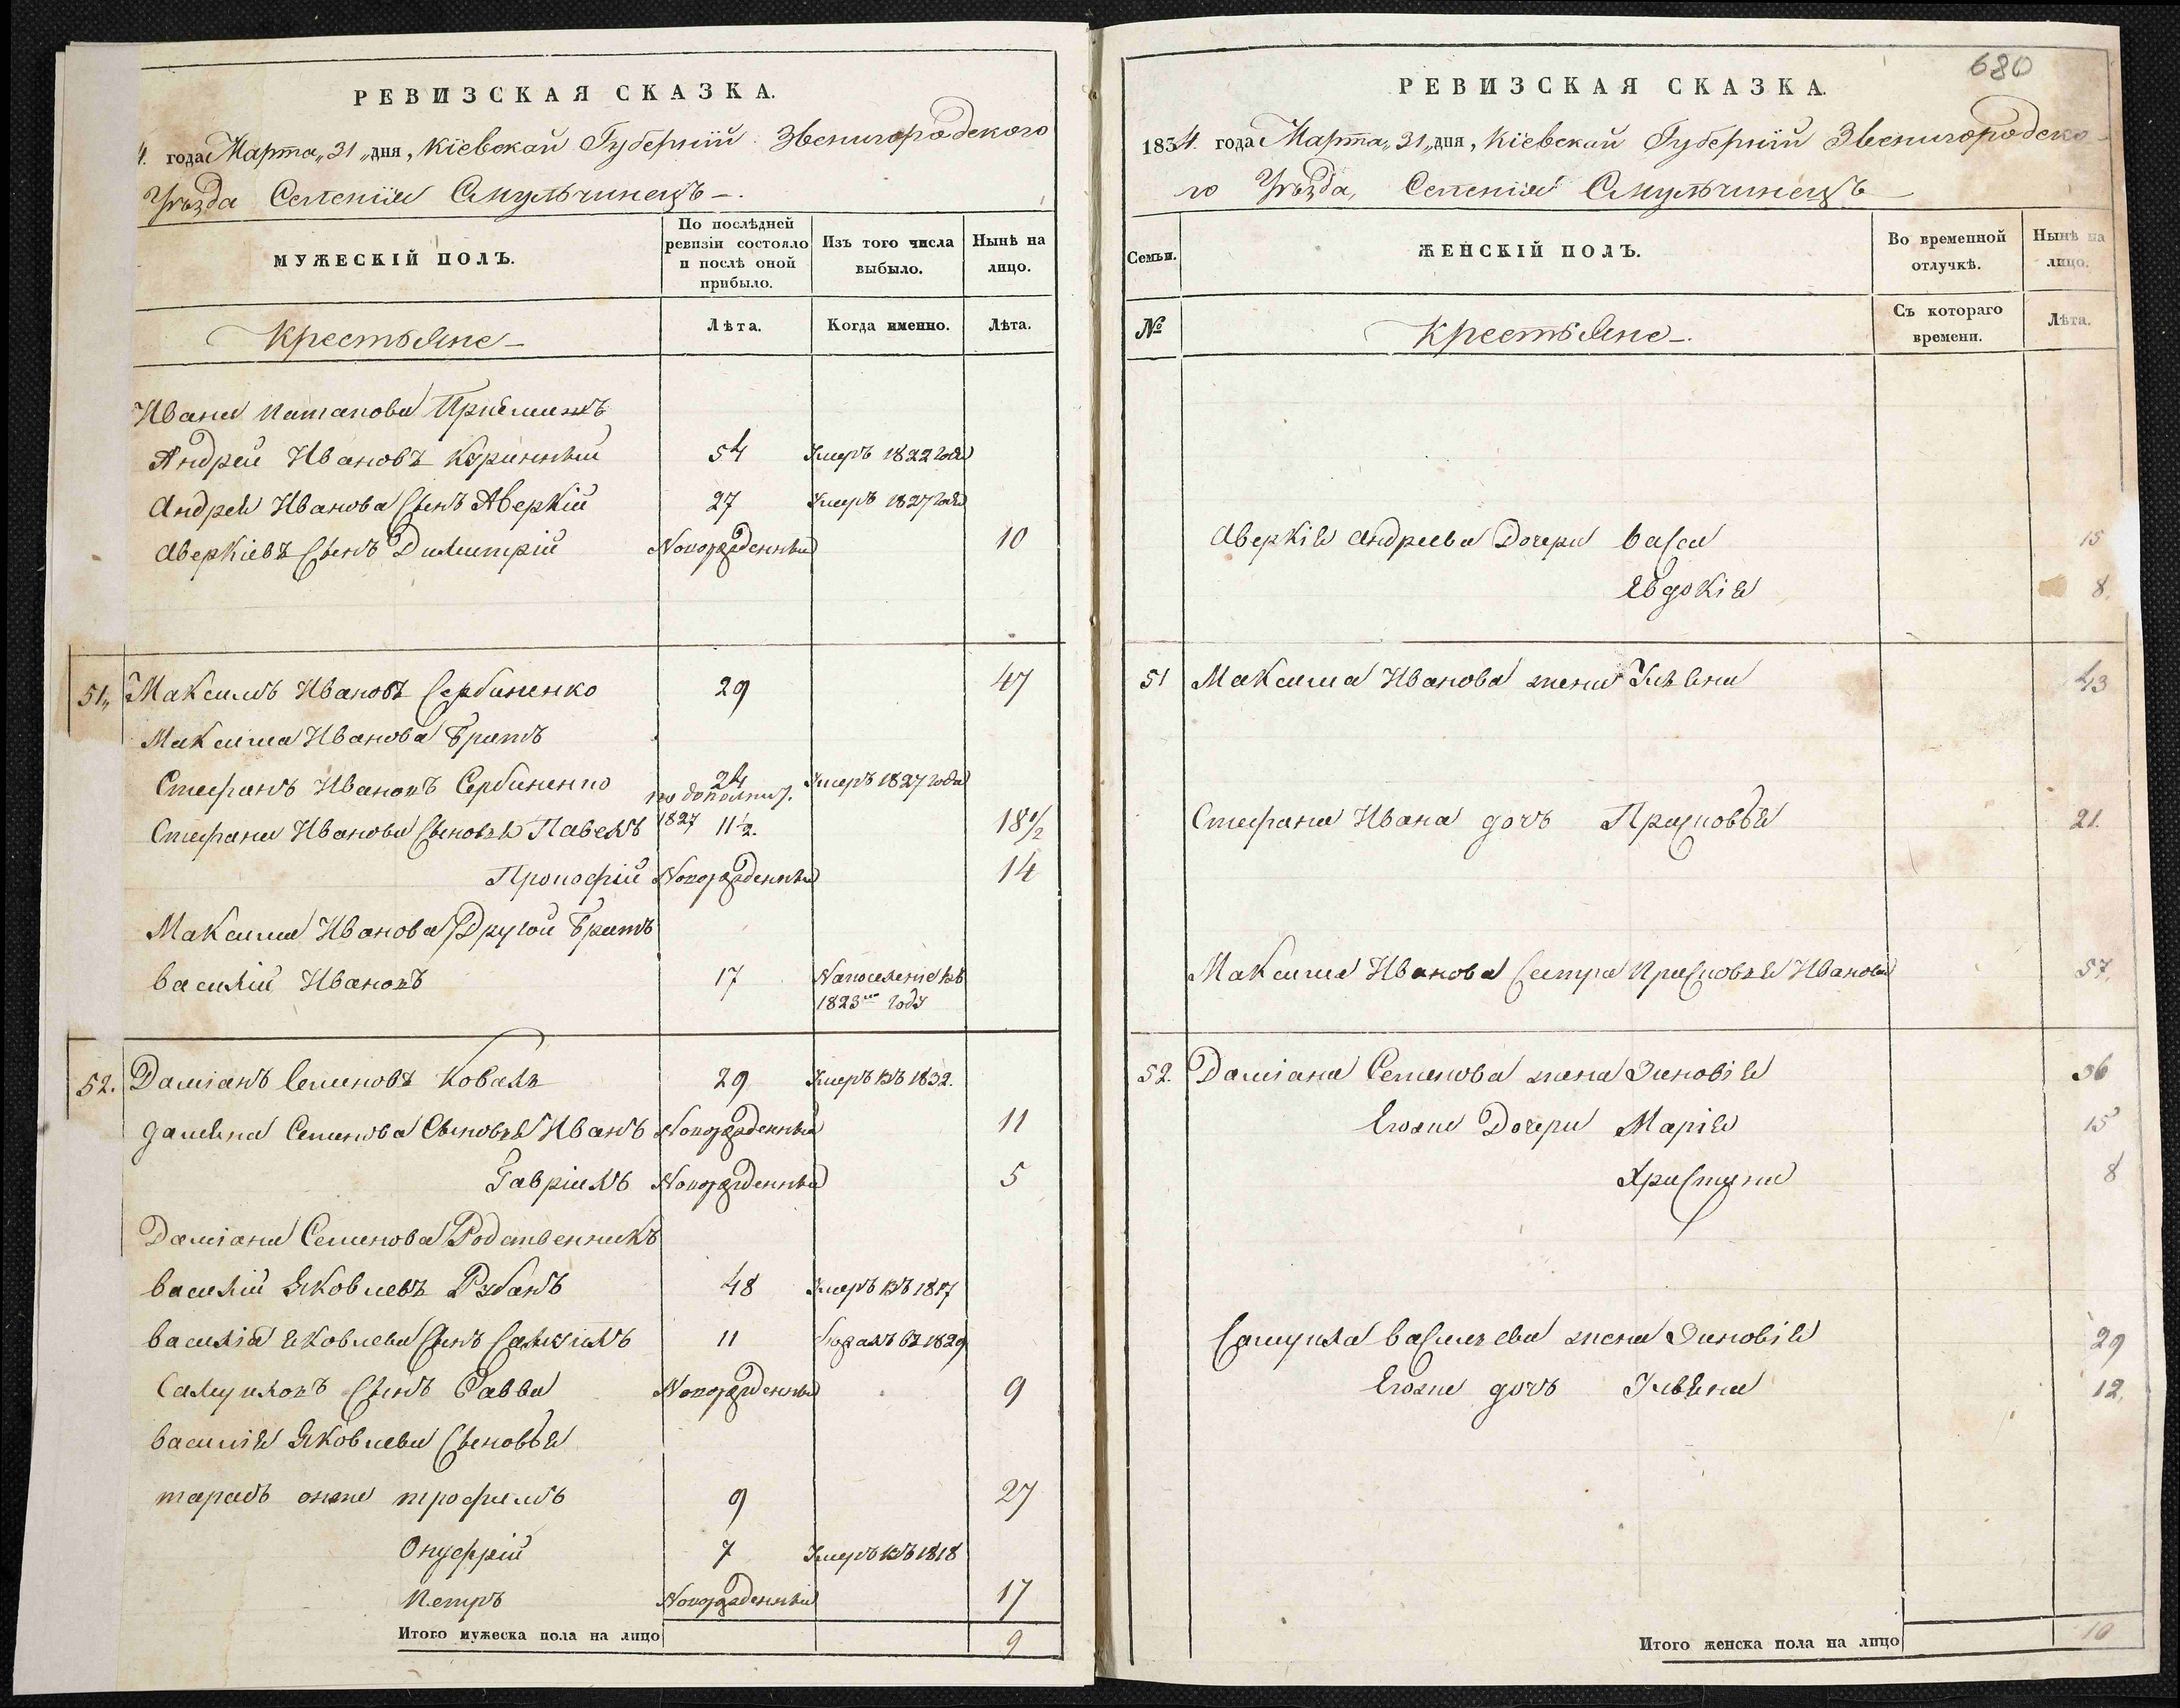 РЕВИЗСКАЯ СКАЗКА.
4. года Марта „31„ дня, Кіевской Губерніи Звенигородского
Уѣзда Селенія Смульчинецъ
МУЖЕСКІЙ ПОЛЪ.
По послѣдней ревизіи состояло и послѣ оной прибыло.
Изъ того числа выбыло.
Нынѣ на лицо.
Крестьяне
Лѣта.
Когда именно.
Лѣта.
Ивана Патапова
Андрей Ивановъ Куринный 54 Умеръ 1822 года
Андрея Иванова Сынъ Аверкій 27 Умеръ 1827 года
Аверкіевъ Сынъ Димитрій Новорожденный 10
51„ Максимъ Ивановъ Сербиненко 29 47
Максима Иванова Братъ
Стефанъ Ивановъ Сербиненко 24 Умеръ 1827 года
по дополнит.
Стефана Иванова Сыновья Павелъ 1827 11½. 18½
Прокофій Новорожденный 14
Максима Иванова Другой Братъ
Василій Ивановъ 17 На поселеніе въ
1823мъ году
52. Даміанъ Семеновъ Коваль 29 Умеръ въ 1832.
Даміана Семенова Сыновья Иванъ Новорожденный 11
Гавріилъ Новорожденный 5
Даміана Семенова Родственникъ
Василій Яковлевъ Рубанъ 48 Умеръ въ 1817
Василія Яковлева Сынъ Самуилъ 11 Бежалъ въ 1829
Самуиловъ Сынъ Савва Новорожденный 9
Василія Яковлева Сыновья
тарасъ онже трофимъ 9 27
Онуфрій 7 Умеръ въ 1818
Петръ Новорожденный 17
Итого мужеска пола на лицо 9
680
РЕВИЗСКАЯ СКАЗКА.
1834. года Марта „31„ дня, Кіевской Губерніи Звенигородско-
го Уѣзда, Селенія Смульчинецъ
Семьи.
ЖЕНСКІЙ ПОЛЪ.
Во временной отлучкѣ.
Нынѣ на лицо.
№
Крестьяне
Съ котораго времени.
Лѣта.
Аверкія Андреева Дочери Васса 15
Евдокія 8.
51 Максима Иванова жена Ульяна 43
Стефана Ивана дочь Прасковья 21.
Максима Иванова Сестра Прасковья Иванова 57.
52. Даміана Семенова жена Зиновія 36
Егоже Дочери Марія 15
Христина 8
Самуила Васильева жена Зиновія 29
Егоже дочь Ульяна 12.
Итого женска пола на лицо 10